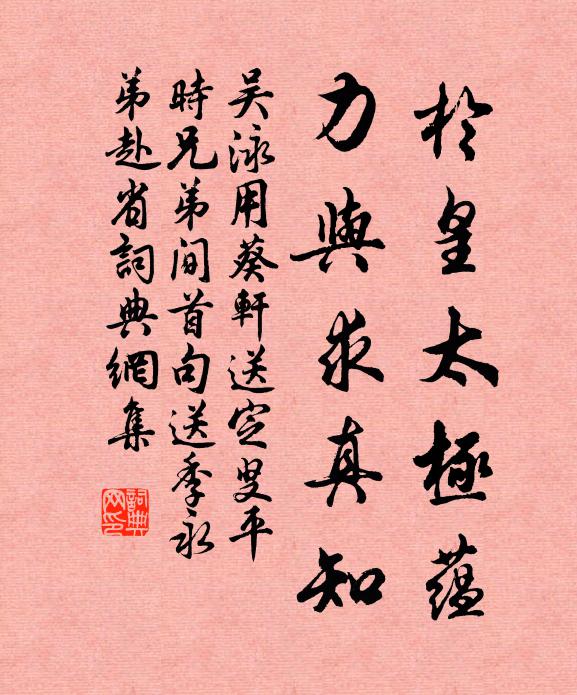 於皇太極蘊
力與求真知
吳泳用葵軒送定叟平
時兄弟間首句送季永
弟赴省詞典網集
詞典网印